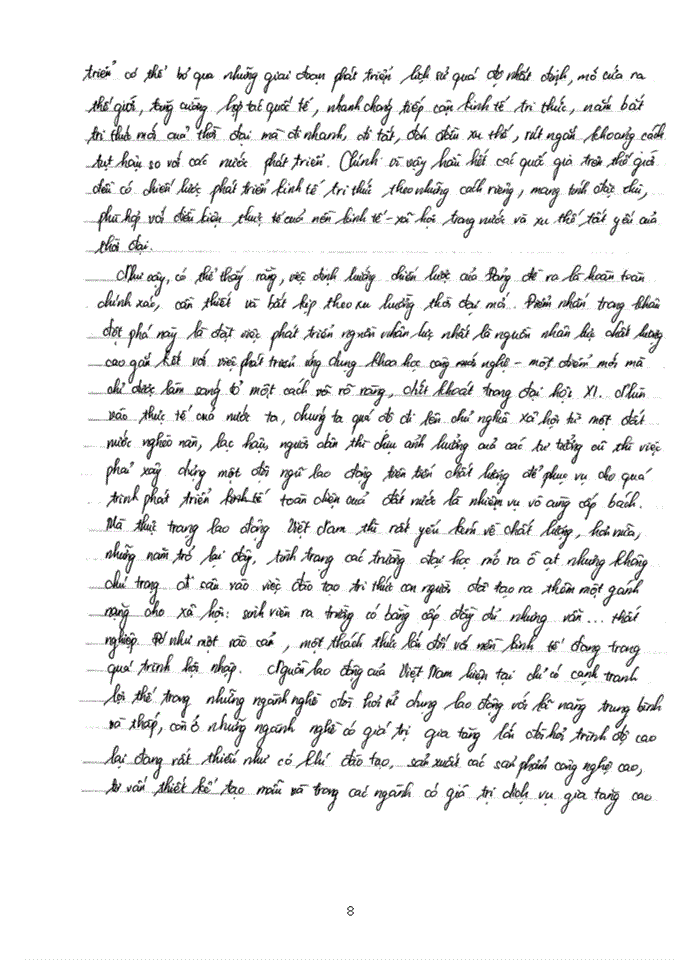 triển có thể bỏ qua những giai đoạn phát triển lịch sử quá độ nhất định, mở cửa ra
thế giới, tăng cường hợp tác quốc tế, nhanh chóng tiếp cận kinh tế tri thức, nắm bắt
tri thức mới của thời đại mà đi nhanh, đi tắt, đón đầu xu thế, rút ngắn khoảng cách
tụt hậu so với các nước phát triển. Chính vì vậy hầu hết các quốc gia trên thế giới
đều có chiến lược phát triển kinh tế tri thức theo những cách riêng, mang tính đặc thù,
phù hợp với điều kiện thực tế của nền kinh tế - xã hội trong nước và xu thế tất yếu của
thời đại.
Như vậy, có thể thấy rằng, việc định hướng chiến lược của Đảng đề ra là hoàn toàn
chính xác, cần thiết và bắt kịp theo xu hướng thời đại mới. Điểm nhấn trong khâu
đột phá này là đặt việc phát triển nguồn nhân lực nhất là nguồn nhân lực chất lượng
cao gắn kết với việc phát triển ứng dụng khoa học công nghệ - một điểm mới mà
chỉ được làm sáng tỏ một cách rõ ràng, chốt khoát trong đại hội XI. Nhìn
vào thực tế của nước ta, chúng ta quá độ đi lên chủ nghĩa xã hội từ một đất
nước nghèo nàn, lạc hậu, người dân thì chịu ảnh hưởng của các tư tưởng cũ thì việc
phải xây dựng một đội ngũ lao động tiên tiến chất lượng để phục vụ cho quá
trình phát triển kinh tế toàn diện của đất nước là nhiệm vụ vô cùng cấp bách.
Mà thực trạng lao động Việt Nam thì rất yếu kém về chất lượng, hơn nữa,
những năm trở lại đây, tình trạng các trường đại học mở ra ồ ạt nhưng không
chú trọng đi sâu vào việc đào tạo tri thức con người đã tạo ra thêm một gánh
nặng cho xã hội: sinh viên ra trường có bằng cấp đầy đủ nhưng vẫn... thất
nghiệp. Đó như một rào cản, một thách thức lớn đối với nền kinh tế đang trong
quá trình hội nhập. Nguồn lao động của Việt Nam hiện tại chỉ có cạnh tranh
lợi thế trong những ngành nghề đòi hỏi sử dụng lao động với kĩ năng trung bình
và thấp, còn ở những ngành nghề có giá trị gia tăng lớn đòi hỏi trình độ cao
lại đang rất thiếu như cơ khí đào tạo, sản xuất các sản phẩm công nghệ cao,
tư vấn thiết kế tạo mẫu và trong các ngành có giá trị dịch vụ gia tăng cao
8